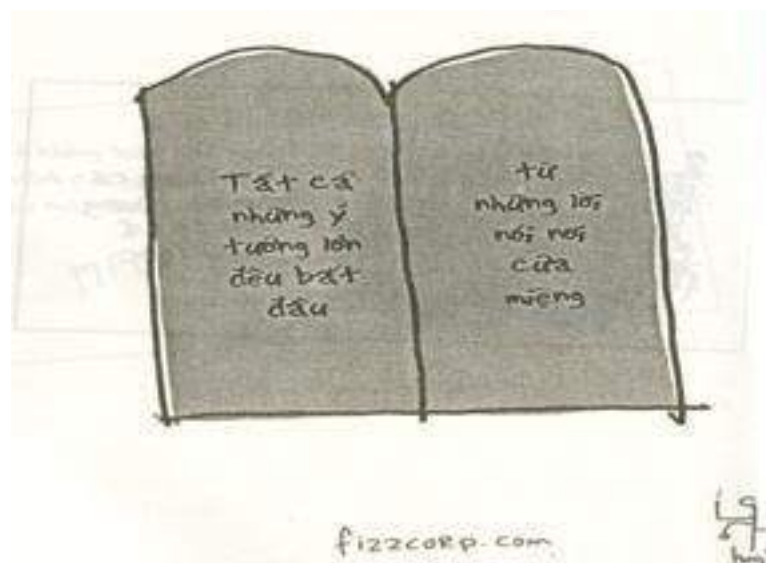 Tất cả
những ý
tưởng lớn
đều bắt
đầu
từ
những lời
nói nơi
cửa
miệng
fizzcorp.com